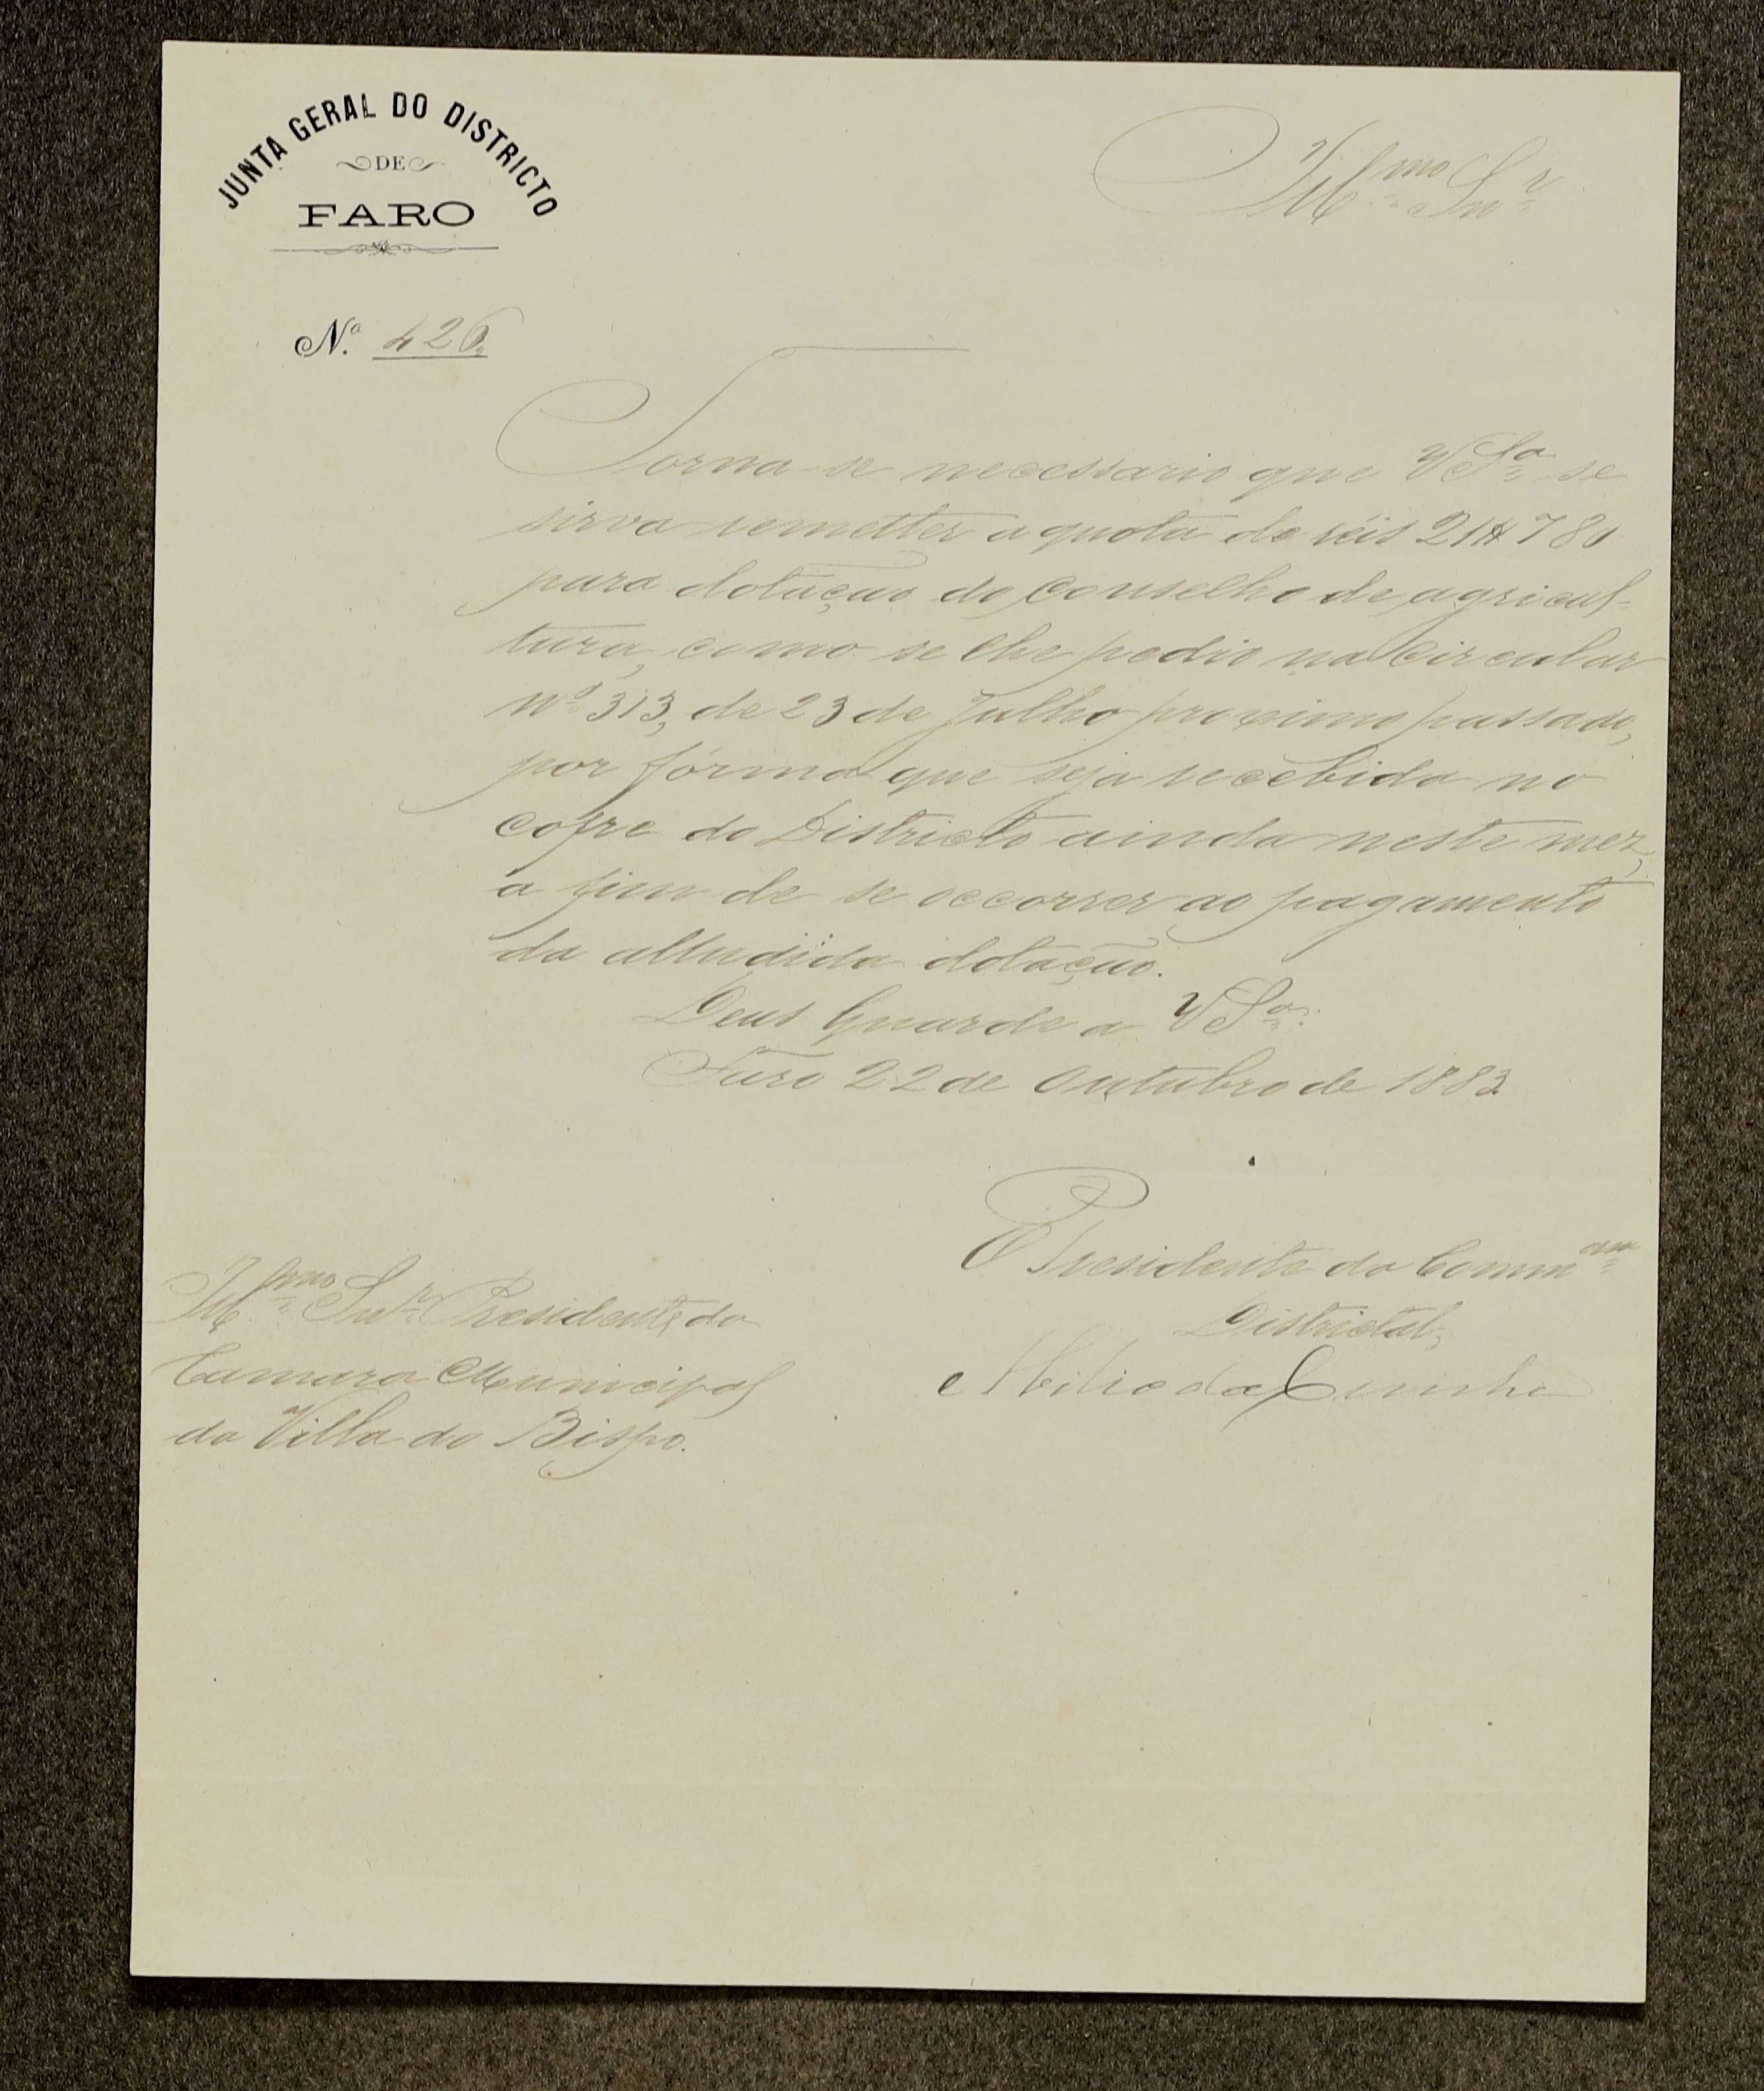 JUNTA GERAL DO DISTRICTO
DE
FARO
Ill.mo Snr.
N.º 426
Torna-se necessario que V S.a se
sirva remetter a quota de réis 21$780
para dotação do Conselho de agricul-
tura, como se lhe pedio na Circular
nº 313, de 23 de Julho proximo passado,
por fórma que seja recebida no
cofre do Districto ainda neste mez,
a fim de se occorrer ao pagamento
da alludida dotação.
Deus Guarde a V S.a
Faro 22 de Outubro de 1883
O Presidente da Comm.am
Districtal,
Abilio da Cunha
Ill.mo Snr. Presidente da
Camara Municipal
da Villa do Bispo.